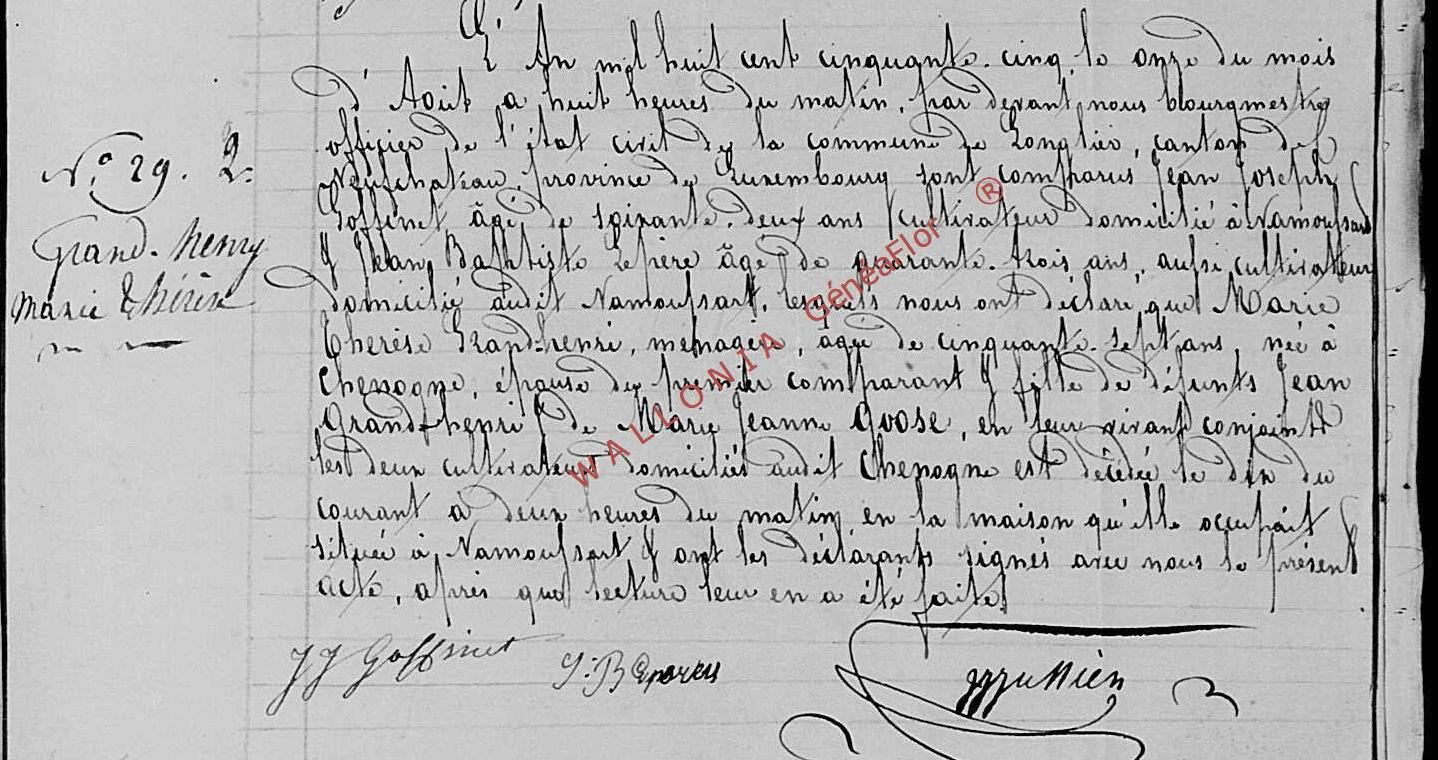 L'An mil huit cent cinquante-cinq, le onze du mois
d'Août a huit heures du matin, par devant nous bourgmestre
officier de l'état civil de la commune de Longlier, canton de
Neufchateau, province de Luxembourg sont comparus Jean Joseph
Goffinet âgé de soixante-deux ans cultivateur domicilié à Namoussart
& Jean Baptiste Lepère âgé de quarante-trois ans, aussi cultivateur
domicilié audit Namoussart, lesquels nous ont déclaré que Marie
Therèse Grand-henri, ménagère, âgée de cinquante-sept ans, née à
Chenogne, épouse du premier comparant & fille de défunts Jean
Grand-henri & de Marie Jeanne Goose, en leur vivant conjoints
les deux cultivateurs domiciliés audit Chenogne est décédée le dix du
courant a deux heures du matin en la maison qu'elle occupait
située à Namoussart & ont les déclarants signés avec nous le présent
acte, après que lecture leur en a été faite.
N.o 29. 2.
Grand-henry
Marie Thérèse
JJ Goffinet
J.B
WALLONIA GénéaFlor ®